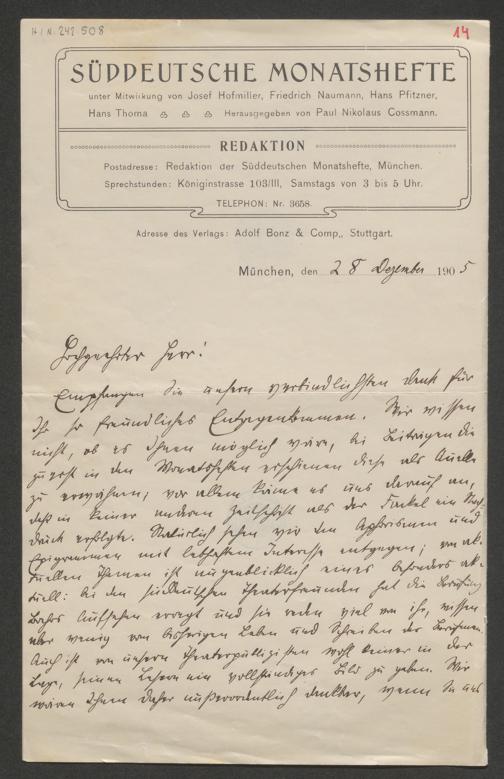 H.I.N. 242 508
14
SÜDDEUTSCHE MONATSHEFTE
unter Mitwirkung von Josef Hofmiller, Friedrich Naumann, Hans Pfitzner,
Hans Thoma Herausgegeben von Paul Nikolaus Cossmann.
REDAKTION
Postadresse: Redaktion der Süddeutschen Monatshefte, München.
Sprechstunden: Königinstrasse 103/III, Samstags von 3 bis 5 Uhr.
TELEPHON: Nr. 3658.
Adresse des Verlags: Adolf Bonz & Comp., Stuttgart.
München, den 28 Dezember 1905
Hochgeehrter Herr!
Empfangen Sie unsern verbindlichsten Dank für
Ihr so freundliches Entgegenkommen. Wir wissen
nicht, ob es Ihnen möglich wäre, bei Beiträgen die
zuerst in den Monatsheften erschienen diese als Quelle
zu erwähnen; vor allem käme es uns darauf an,
daß in keiner anderen Zeitschrift als der Fackel ein Nach-
druck erfolgte. Natürlich sehen wir den Aphorismen und
Epigrammen mit lebhaftem Interesse entgegen; von ak-
tuellen Themen ist augenblicklich eines besonders ak-
tuell: bei den süddeutschen Theaterfreunden hat die Berufung
Aufsehen erregt und sie reden viel von ihr, wissen
aber wenig vom bisherigen Leben und Schreiben des Berufenen.
Auch ist von unsern Theaterpublizisten wohl keiner in der
Lage, seinen Lesern ein vollständiges Bild zu geben. Wir
wären Ihnen daher außerordentlich dankbar, wenn Sie uns